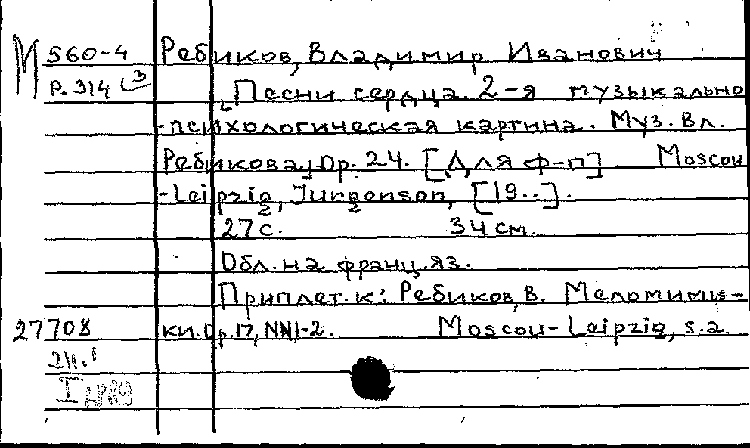 М 560-4 Ребиков, Владимир Иванович
Р. 314 3 Песни сердца. 2-я музыкально
-психологическая картина. Муз. Вл.
Ребикова, Op. 24. [Для ф-п] Moscou
-Leipzig, Jurgenson, [19..].
27 с. 34 см.
Обл. на франц. яз.
Приплет. к: Ребиков, В. Меломими-
27708 ки. Op. 17, NN1-2. Moscou-Leipzig, s.a.
2н.